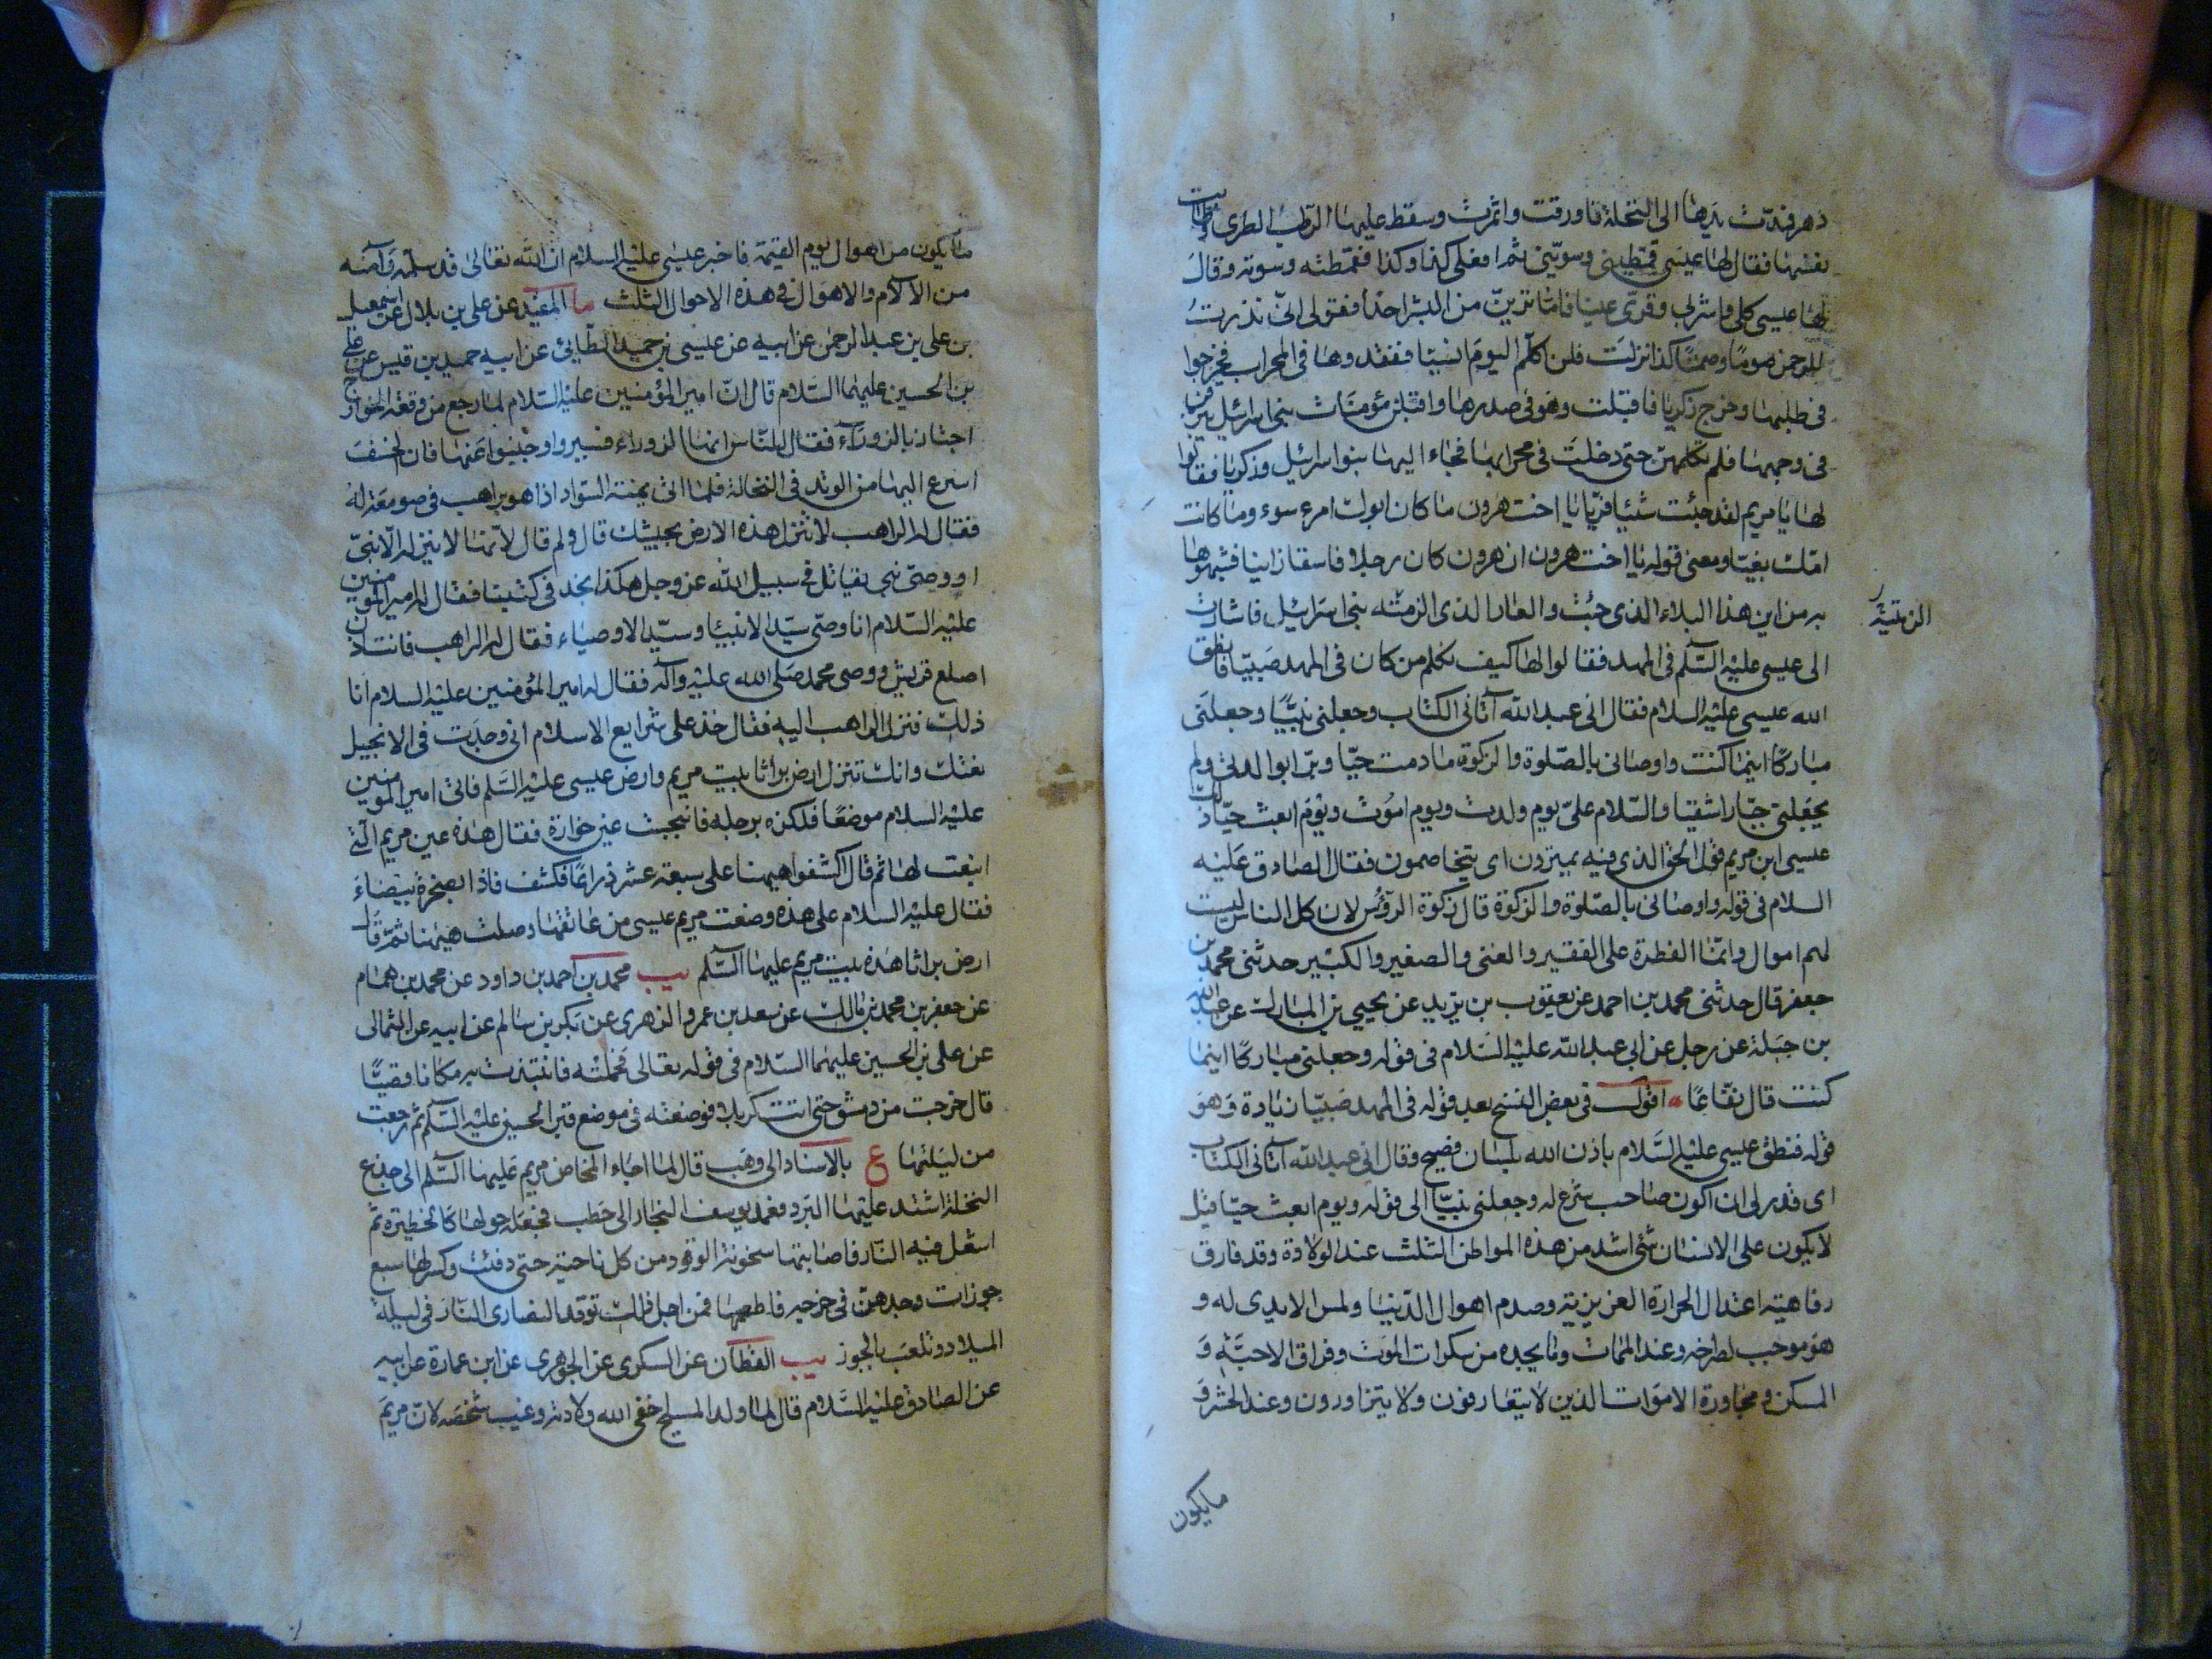 دهر فمدّت يدها الى النخلة فاورقت واثمرت وسقط عليها الرطب الطرى فطابت
نفسها فقال لها عيسى قمّطينى وسوّينى ثم افعلى كذا وكذا فقمّطته وسوته وقال
لها عيسى كلى واشربى وقرّى عينا فامّا ترينّ من البشر احدًا فقولى انّى نذرت
للرحمن صومًا وصمتًا كذا نزلت فلن اكلّم اليوم انسيّا ففقدوها فى المحراب فخرجوا
فى طلبها وخرج زكريا فاقبلت وهو فى صدرها واقبلن مؤمنات بنى اسرائيل يبزقن
فى وجهها فلم تكلّمهنّ حتى دخلت فى محرابها فجاء اليها بنو اسرائيل وزكريا فقالوا
لها يا مريم لقد جئت شيئا فريّا يا اخت هرون ما كان ابوك امرء سوء وما كانت
امّك بغيّا ومعنى قوله يا اخت هرون ان هرون كان رجلا فاسقا زانيا فشبهوها
به من اين هذا البلاء الذى جئت والعار الذى الزمته بنى اسرائيل فاشارت
الزمتيه ر
الى عيسى عليه السّلم فى المهد فقالوا لها كيف نكلم من كان فى المهد صبيّا فانطق
الله عيسى عليه السلام فقال انى عبد الله آتانى الكتاب وجعلنى نبيّا وجعلنى
مباركًا اينما كنت واوصانى بالصّلوة والزكوة ما دمت حيّا وبرّا بوالدتى ولم
يجعلنى جبّارا شقيا والسّلام علىّ يوم ولدت ويوم اموت ويوم ابعث حيّا ذلك
عيسى ابن مريم قول الحق الذى فيه يمترون اى يتخاصمون فقال الصادق عليه
السلام فى قوله واوصانى بالصّلوة والزكوة قال زكوة الرؤس لان كل الناس ليست
لهم اموال وانّما الفطرة على الفقير والغنى والصغير والكبير حدثنى محمد بن
جعفر قال حدثنى محمد بن احمد عن يعقوب بن يزيد عن يحيى بن المبارك عن عبد الله
بن جبلة عن رجل عن ابى عبد الله عليه السّلام فى قوله وجعلنى مباركًا اينما
كنت قال نفّاعًا اقول فى بعض النسخ بعد قوله فى المهد صبيّا زيادة وهو
قوله فنطق عيسى عليه السّلام باذن الله بلسان فصيح وقال انى عبد الله آتانى الكتاب
اى قدر لى ان اكون صاحب شرع له وجعلنى نبيّا الى قوله ويوم ابعث حيّا قيل
لا يكون على الانسان شئ اشد من هذه المواطن الثلث عند الولادة وقد فارق
رفاهيته اعتدال الحرارة الغريزية وصدم اهوال الدّنيا ولمس الايدى له و
هو موجب لصراخه وعند الممات وما يجده من سكرات الموت وفراق الاحبّة و
المسكن ومجاورة الاموات الذين لا يتعارفون ولا يتزاورون وعند الحشر و
ما يكون
ما يكون من اهوال يوم القيمة فاخبر عيسى عليه السلام ان الله تعالى قد سلّمه وآمنه
من الآلام والاهوال فى هذه الاحوال الثلث ما المفيد عن على بن بلال عن اسمعيل
بن على بن عبد الرحمن عن ابيه عن عيسى بن حميد الطّائى عن ابيه حميد بن قيس عن على
بن الحسين عليهما السّلام قال انّ امير المؤمنين عليه السّلام لما رجع من وقعة الخوارج
اجتاز بالزوراء فقال للنّاس انها الزوراء فسيروا وجنّبوا عنها فان الخسف
اسرع اليها من الوتد فى النخالة فلما اتى يمنة السّواد اذا هو براهب فى صومعة له
فقال له الراهب لا تنزل هذه الارض بجيشك قال ولم قال لانّها لا ينزلها الّا نبىّ
او وصىّ نبى يقاتل فى سبيل الله عز وجل هكذا نجد فى كتبنا فقال له امير المؤمنين
عليه السّلام انا وصى سيّد الانبيا وسيّد الاوصياء فقال له الراهب فانت اذن
اصلع قريش ووصى محمد صلى الله عليه وآله فقال له امير المؤمنين عليه السلام انا
ذلك فنزل الراهب اليه فقال خذ على شرايع الاسلام انى وجدت فى الانجيل
نعتك وانك تنزل ارض براثا بيت مريم وارض عيسى عليه السّلم فاتى امير المؤمنين
عليه السلام موضعًا فلكزه برجله فانبجست عين خوارة فقال هذه عين مريم الّتى
انبعت لها ثم قال اكشفوا هيهنا على سبعة عشر ذراعًا فكشف فاذا بصخرة بيضاء
فقال عليه السلام على هذه وضعت مريم عيسى من عاتقها وصلت هيهنا ثم قال
ارض براثا هذه بيت مريم عليها السّلم يب محمد بن احمد بن داود عن محمد بن همام
عن جعفر بن محمد بن مالك عن سعد بن عمرو الزهرى عن بكر بن سالم عن ابيه عن الثمالى
عن على بن الحسين عليهما السّلام فى قوله تعالى فحملته فانتبذت به مكانا قصيّا
قال خرجت من دمشق حتى اتت كربلا فوضعته فى موضع قبر الحسين عليه السّلم ثم رجعت
من ليلتها ع بالاسناد الى وهب قال لما اجاء المخاض مريم عليها السّلم الى جذع
النخلة اشتد عليها البرد فعمد يوسف النجار الى حطب فجعله حولها كالحظيرة ثم
اشعل فيه النّار فاصابتها سخونة الوقود من كل ناحية حتى دفئت وكسر لها سبع
جوزات وجدهنّ فى خرجه فاطعمها فمن اجل ذلك توقد النصارى النّار فى ليلة
الميلاد وتلعب بالجوز يب القطّان عن السكرى عن الجوهرى عن ابن عمارة عن ابيه
عن الصادق عليه السّلام قال لما ولد المسيح اخفى الله ولادته وغيب شخصه لانّ مريم